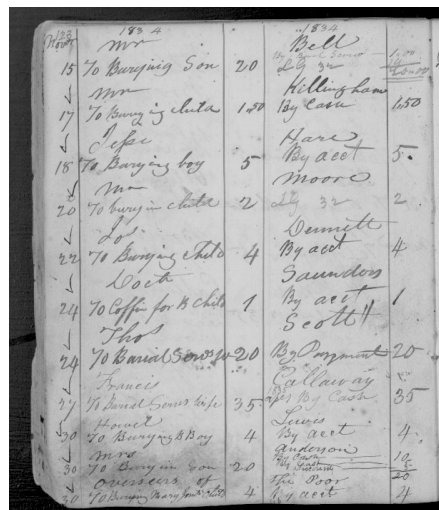 1834 1834
Novr Mr Bell
15 To Burying Son 20 LG 32 20.00
Mr Killingham
17 To Burying child 1.50 By Cash 1.50
Jesse Hare
18 To Burying boy 5 By acct 5.
Mr Moore
20 To buryin child 2 LG 32 2
Los Dennett
22 To Burying child 4 By acct 4
Doct Saunders
24 To Coffin for B Child 1 By acct 1
Thos Scott
24 To Burial 20 By Payment 20
Francis Callaway
27 To Burial 35 By Cash 35
Howel Lewis
30 To Burying B Boy 4 By acct 4
Mrs Anderson
30 To Buryin Son 20 By Cash 10
20
overseers of The Poor
30 To Burying Mary 4 By acct 4